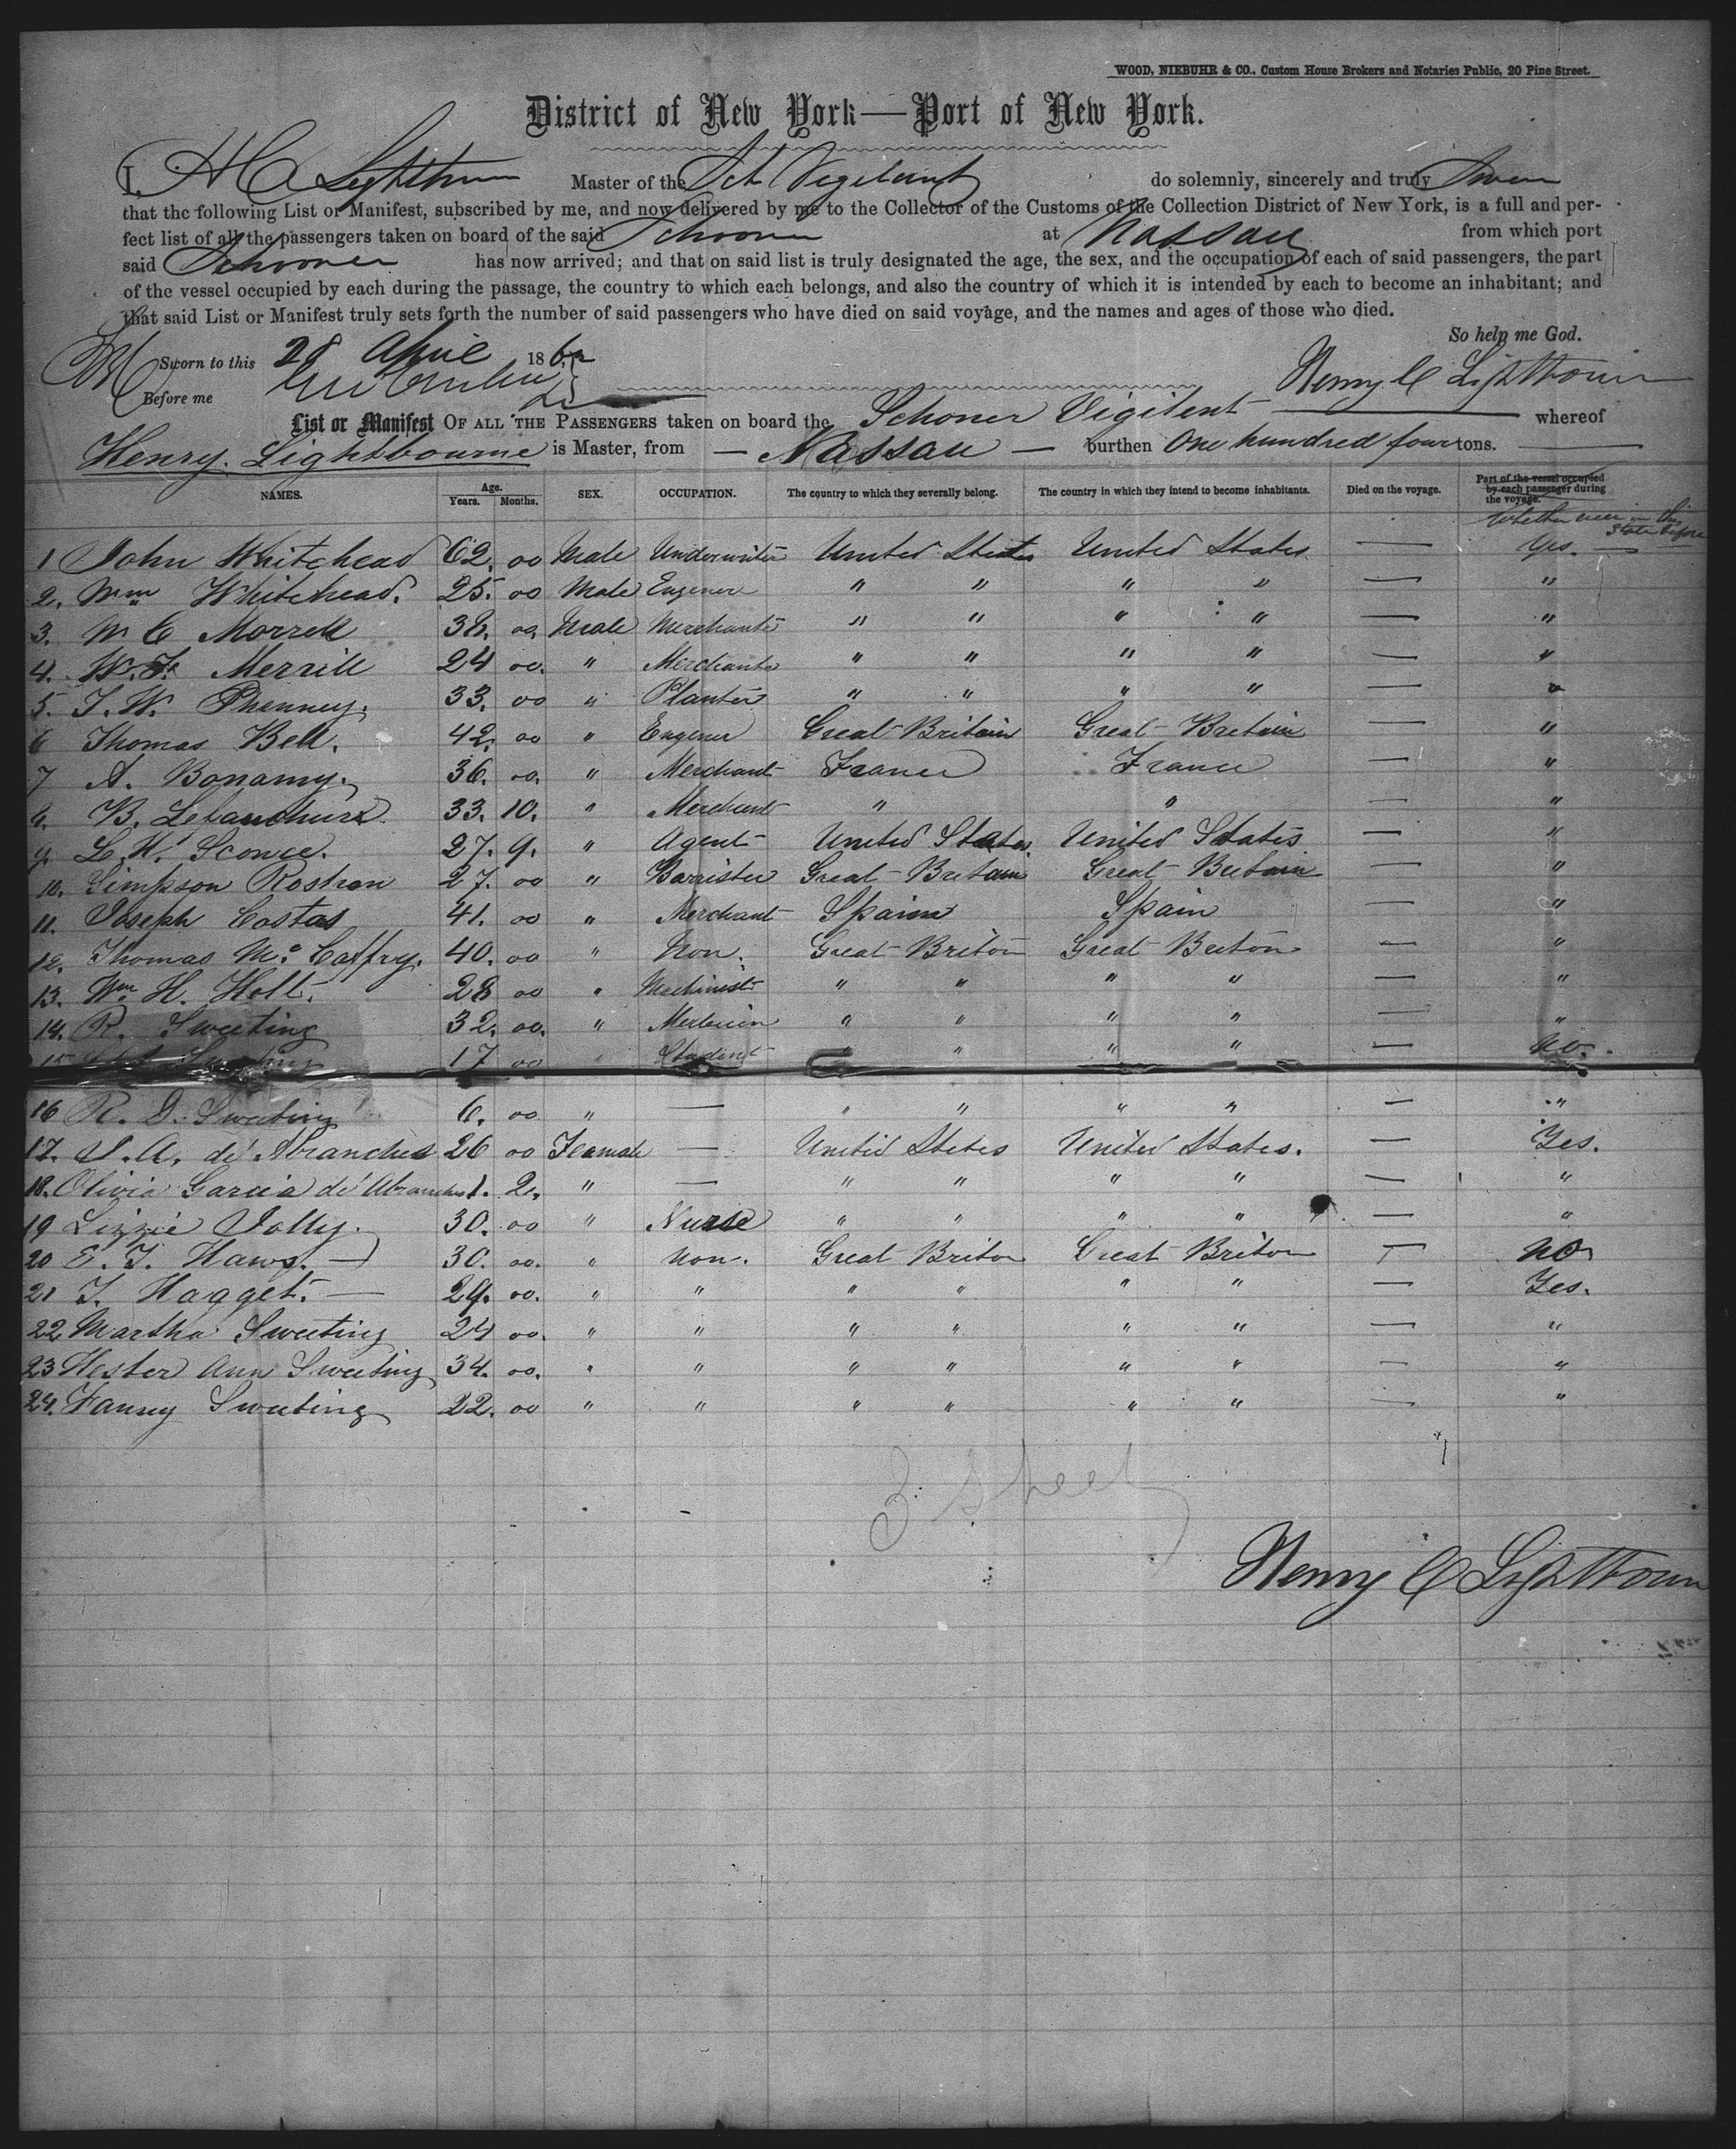 WOOD, NIEBUHR & CO., Custom House Brokers and Notaries Public, 20 Pine Street.
District of New York—Port of New York.
I, H C Lightbourn Master of the Sch Vigilant do solemnly, sincerely and truly Swear
that the following List or Manifest, subscribed by me, and now delivered by me to the Collector of the Customs of the Collection District of New York, is a full and per-
fect list of all the passengers taken on board of the said Schooner at Nassau from which port
said Schooner has now arrived; and that on said list is truly designated the age, the sex, and the occupation of each of said passengers, the part
of the vessel occupied by each during the passage, the country to which each belongs, and also the country of which it is intended by each to become an inhabitant; and
that said List or Manifest truly sets forth the number of said passengers who have died on said voyage, and the names and ages of those who died.
So help me God.
Sworn to this 28 April 186
Before me Henry C Lightbourn
List or Manifest OF ALL THE PASSENGERS taken on board the Schoner Vigilent — whereof
Henry. Lightbourne is Master, from — Nassau — burthen One hundred four tons. —
NAMES. Age. Years. Months. SEX. OCCUPATION. The country to which they severally belong. The country in which they intend to become inhabitants. Died on the voyage. Part of the vessel occupied by each passenger during the voyage.
Whether ever in this State before
1 John Whitehead 62. 00 Male Underwriter United States United States — Yes. —
2. Wm Whitehead. 25. 00 Male Engener " " " " — "
3. W C Morrell 38. 00 Male Merchante " " " " — "
4. W. F. Merrill 24 00. " Merchante " " " " — "
5. T. W. Phenney. 33. 00 " Planter " " " " — "
6 Thomas Bell. 42. 00 " Engener Great Britain Great Britain — "
7 A. Bonamy. 36. 00. " Merchant France France — "
8. B. 33. 10. " Merchant " " — "
9. L. H. Sconce. 27. 9. " Agent United States United States — "
10. Simpson Rostron 27. 00 " Barrister Great Britain Great Britain — "
11. Joseph Costas 41. 00 " Merchant Spain Spain — "
12. Thomas Mc Caffry. 40. 00 " Non. Great Briton Great Briton — "
13. Wm H. Holt. 28 00 " Machinist " " " " — "
14. R. Sweeting 32. 00. " " " " " — "
15 Sweeting 17 00 " Student " " " " — No.
16 R. D. Sweeting 6. 00 " — " " " " — "
17. J. A. de Abranches 26 00 Feamale — United States United States. — Yes.
18. Olivia Garcia de Abranches 1. 2. " — " " " " — "
19 Lizzie Jolly. 30. 00 " Nurse " " " " — "
20 E. J. Haws. — 30. 00. " Non. Great Briton Great Briton — No
21 J. Hagget. — 29. 00. " " " " " " — Yes.
22 Martha Sweeting 24 00. " " " " " " — "
23 Hester Ann Sweeting 34. 00. " " " " " " — "
24. Fanny Sweeting 22. 00 " " " " " " — "
3 sheet
Henry C Lightbourn